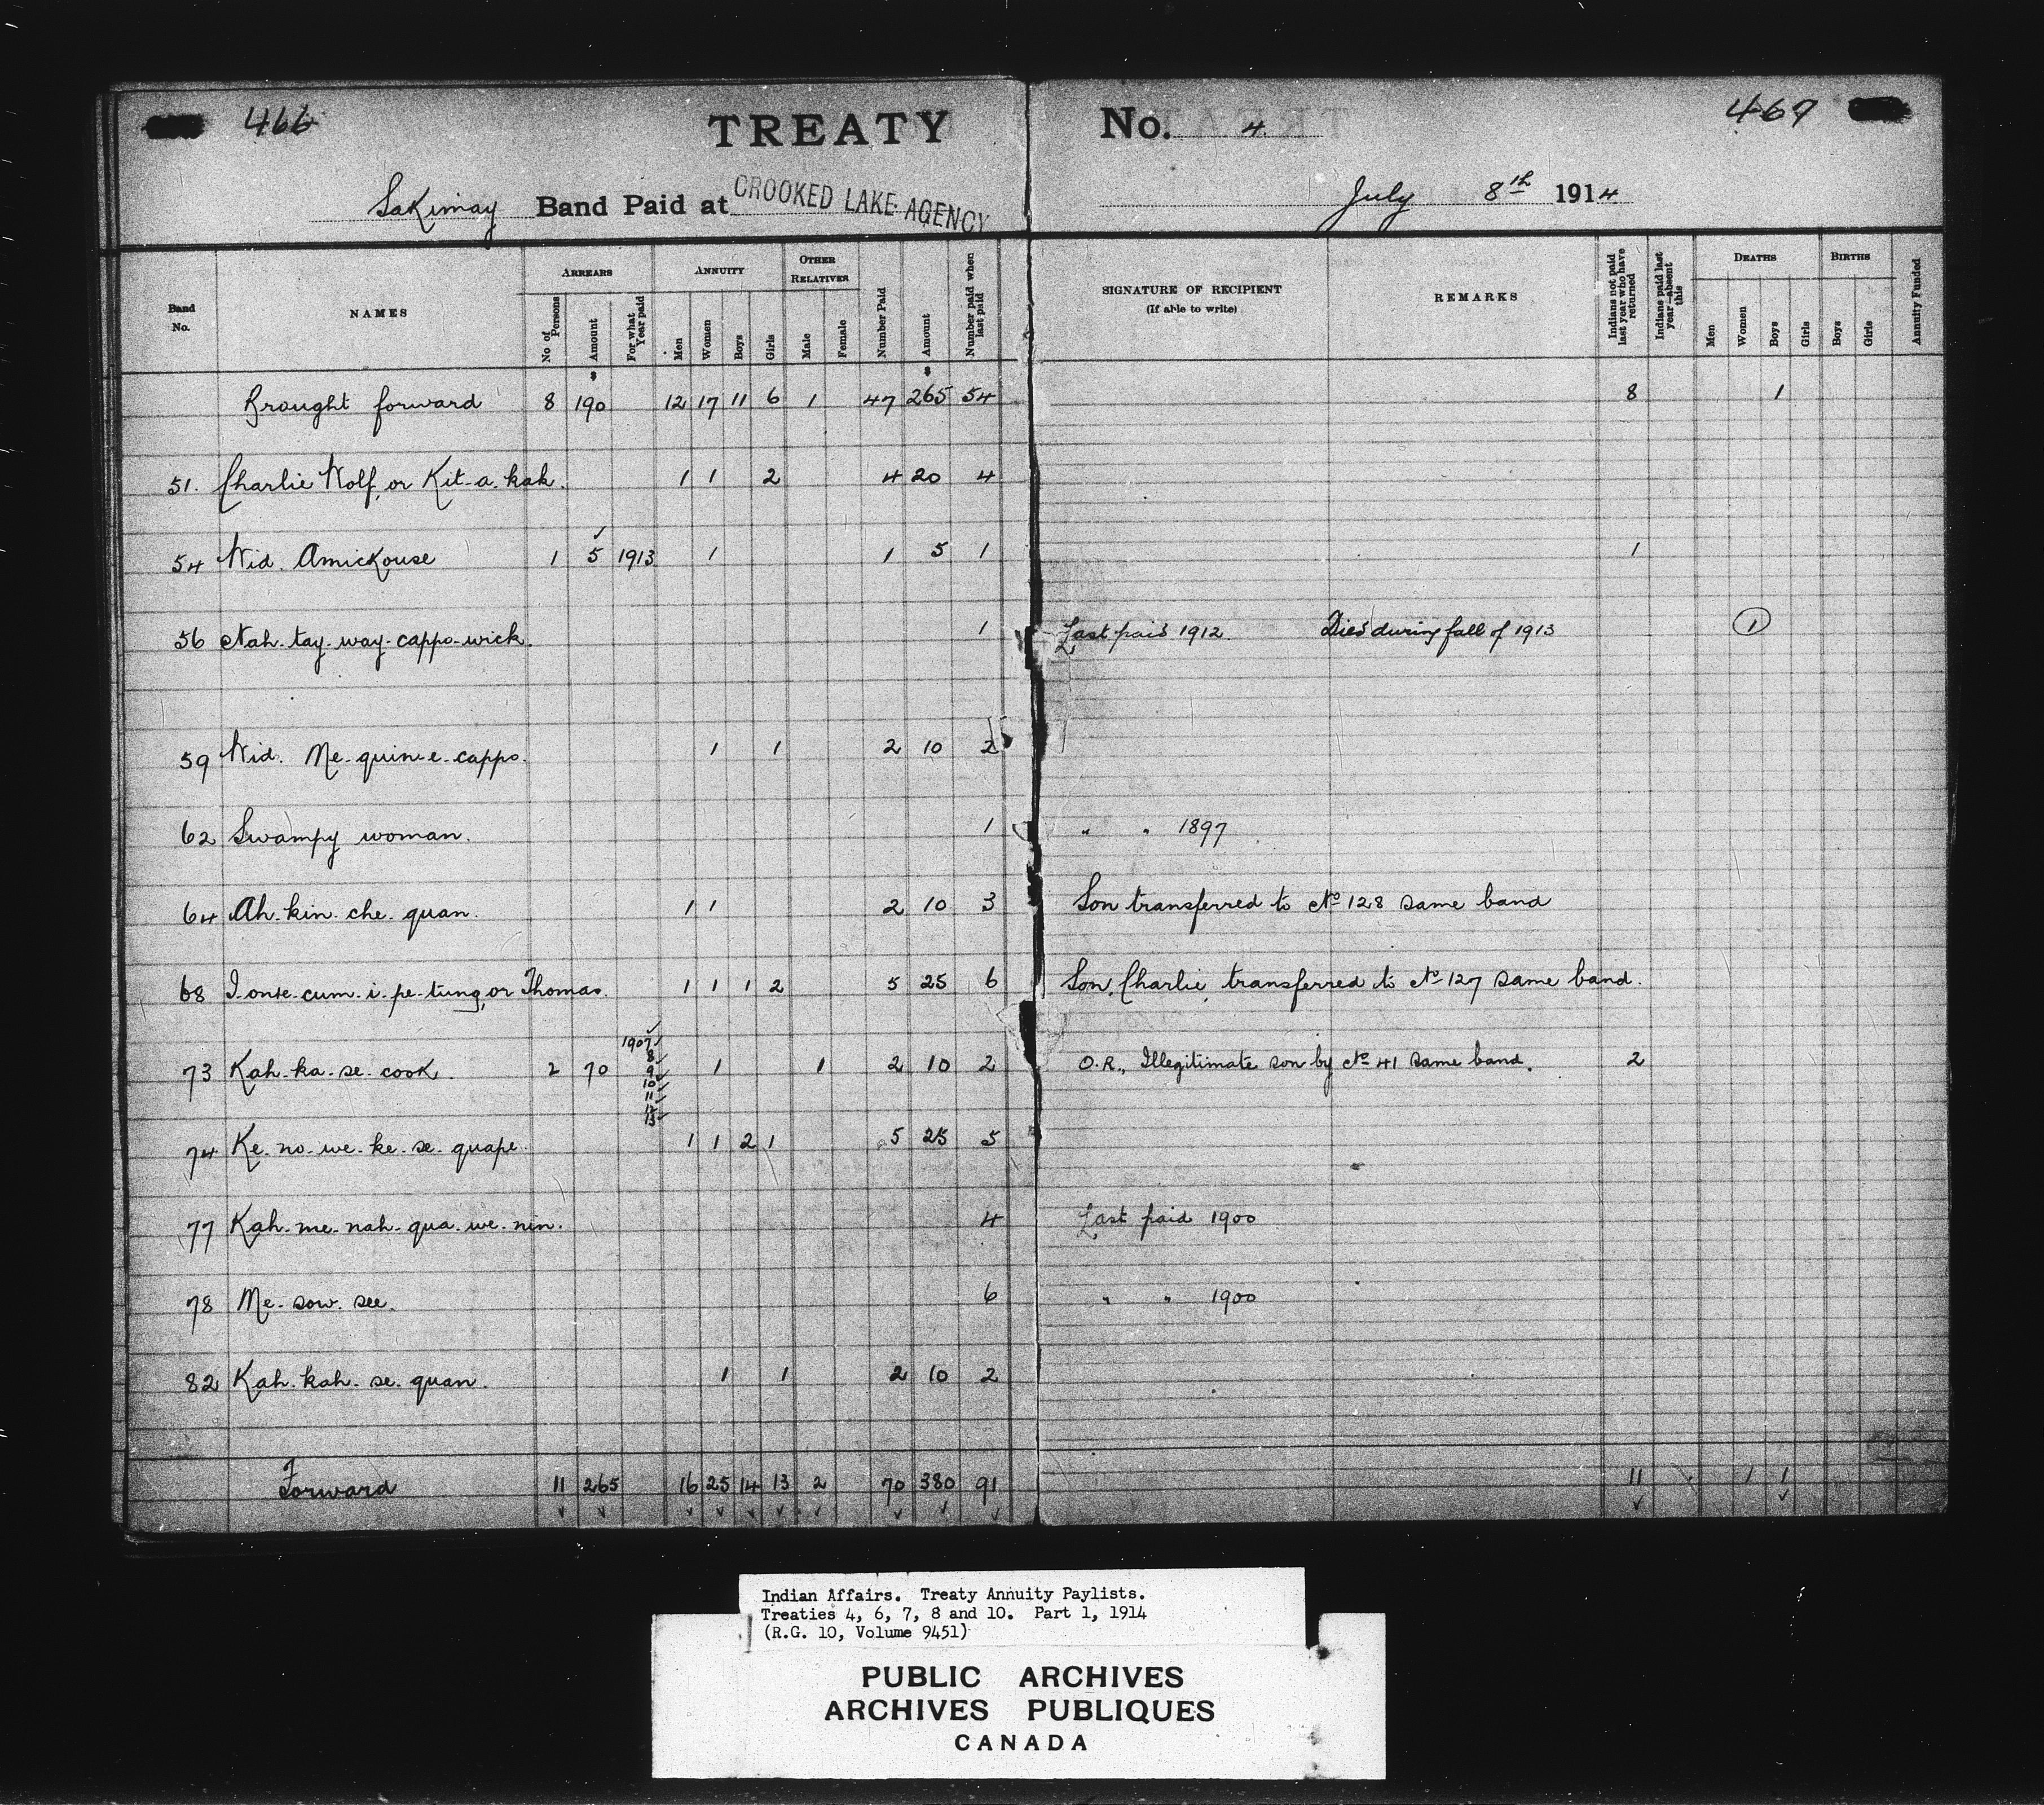 466
TREATY No. 4
467
Sakimay Band Paid at CROOKED LAKE AGENCY July 8th 1914
Band No. NAMES ARREARS No of Persons Amount For what Year paid ANNUITY Men Women Boys Girls OTHER RELATIVES Male Female Number Paid Amount Number paid when last paid SIGNATURE OF RECIPIENT (If able to write) REMARKS Indians not paid last year who have returned Indians paid last year—absent this DEATHS Men Women Boys Girls BIRTHS Boys Girls Annuity Funded
$ $
Brought forward 8 190 12 17 11 6 1 47 265 54 8 1
51. Charlie Wolf, or Kit-a-kak. 1 1 2 4 20 4
54 Wid. Amickouse 1 5 1913 1 1 5 1 1
56 Nah-tay-way-cappo-wick. 1 Last paid 1912 Died during fall of 1913 1
59 Wid. Me-quin-e-cappo. 1 1 2 10 2
62 Swampy woman. 1 " " 1897
64 Ah-kin-che-quan. 1 1 2 10 3 Son transferred to No 128 same band
68 I-onse-cum-i-pe-tung, or Thomas. 1 1 1 2 5 25 6 Son, Charlie, transferred to No 127 same band.
73 Kah-ka-se-cook. 2 70 1907 8 9 10 11 12 13 1 1 2 10 2 O.R., Illegitimate son by No 41 same band. 2
74 Ke-no-we-ke-se-quape. 1 1 2 1 5 25 5
77 Kah-me-nah-qua-we-nin. 4 Last paid 1900
78 Me-sow-see. 6 " " 1900
82 Kah-kah-se-quan. 1 1 2 10 2
Forward 11 265 16 25 14 13 2 70 380 91 11 1 1
Indian Affairs. Treaty Annuity Paylists.
Treaties 4, 6, 7, 8 and 10. Part 1, 1914
(R.G. 10, Volume 9451)
PUBLIC ARCHIVES
ARCHIVES PUBLIQUES
CANADA